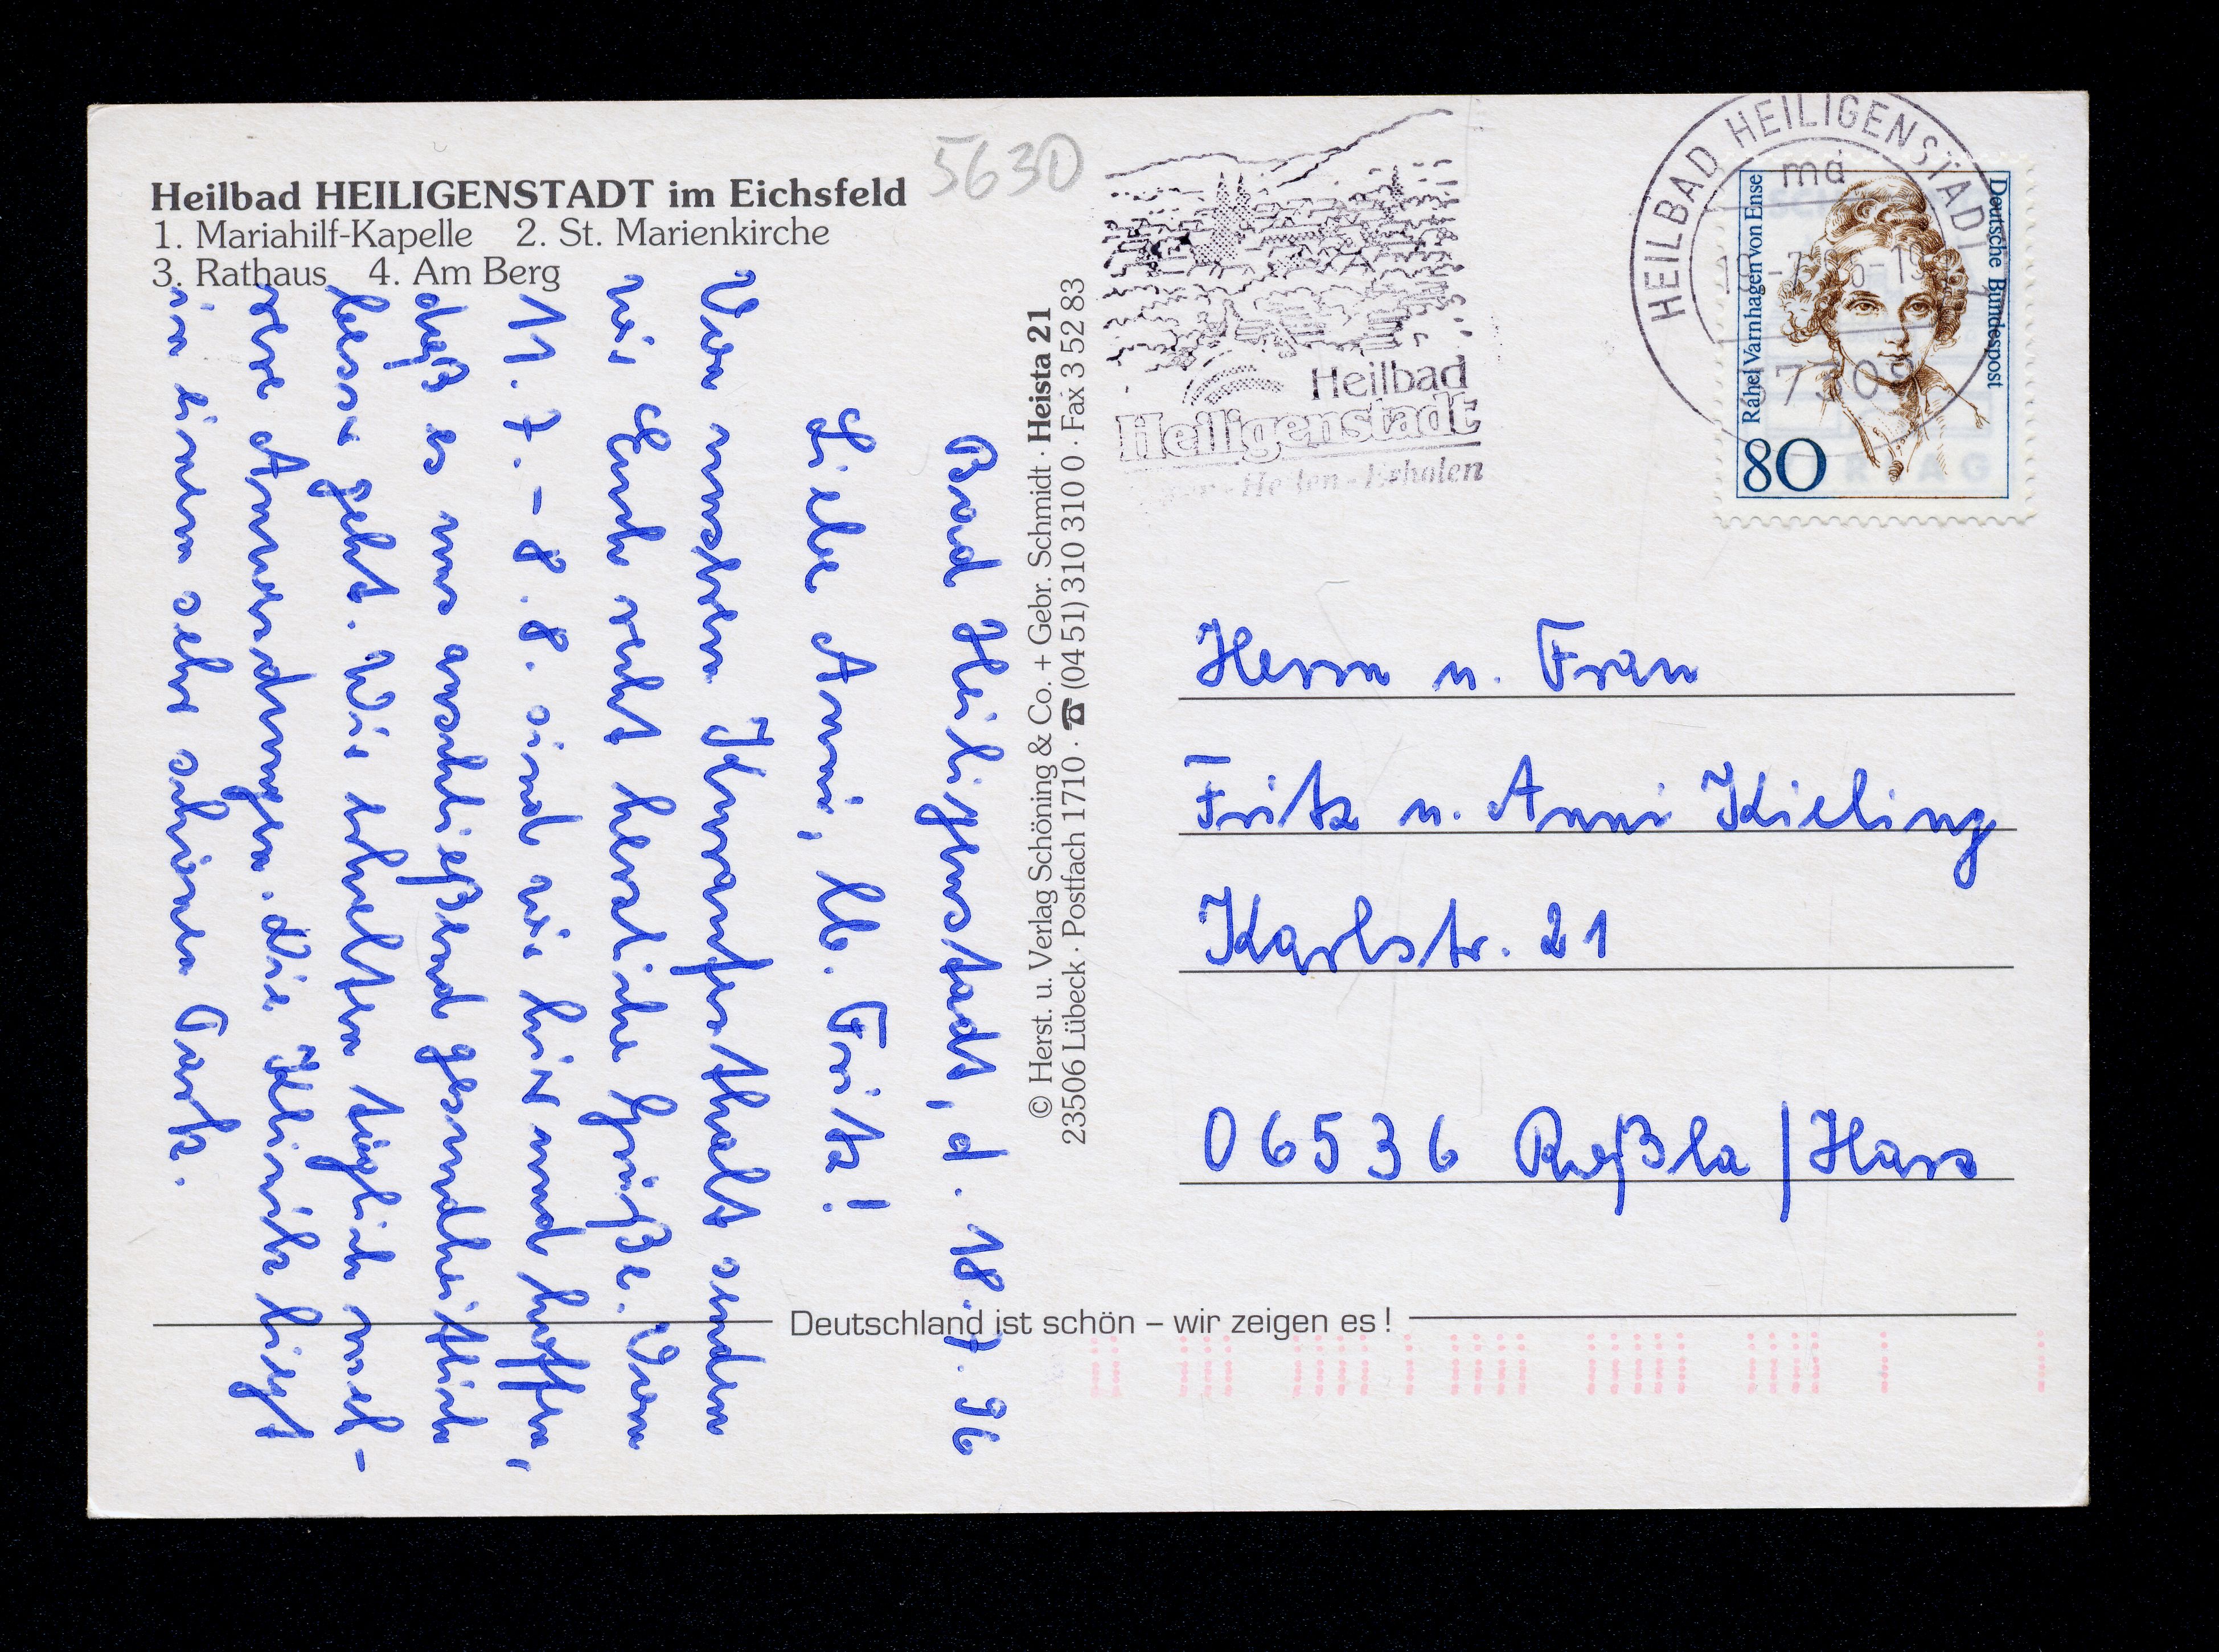 Heilbad HEILIGENSTADT im Eichsfeld
1. Mariahilf-Kapelle 2. St. Marienkirche
3. Rathaus 4. Am Berg
5630
Bad Heiligenstadt, d. 18.7.96
Liebe Anni, lb. Fritz!
Von unserem Kuraufenthalt senden
wir Euch recht herzliche Grüße. Vom
11.7.-8.8. sind wir hier und hoffen,
daß es uns anschließend gesundheitlich
besser geht. Wir erhalten täglich meh-
rere Anwendungen. Die Klinik liegt
in einem sehr schönen Park.
© Herst. u. Verlag Schöning & Co. + Gebr. Schmidt · Heista 21
23506 Lübeck · Postfach 1710 · ☎ (04 51) 310 310 0 · Fax 3 52 83
Heilbad
Heiligenstadt
Erholen
HEILBAD HEILIGENSTADT
ma
37308
Rahel Varnhagen von Ense
Deutsche Bundespost
80
Herrn u. Frau
Fritz u. Anni Kieling
Karlstr. 21
06536 Roßla/Harz
Deutschland ist schön – wir zeigen es!